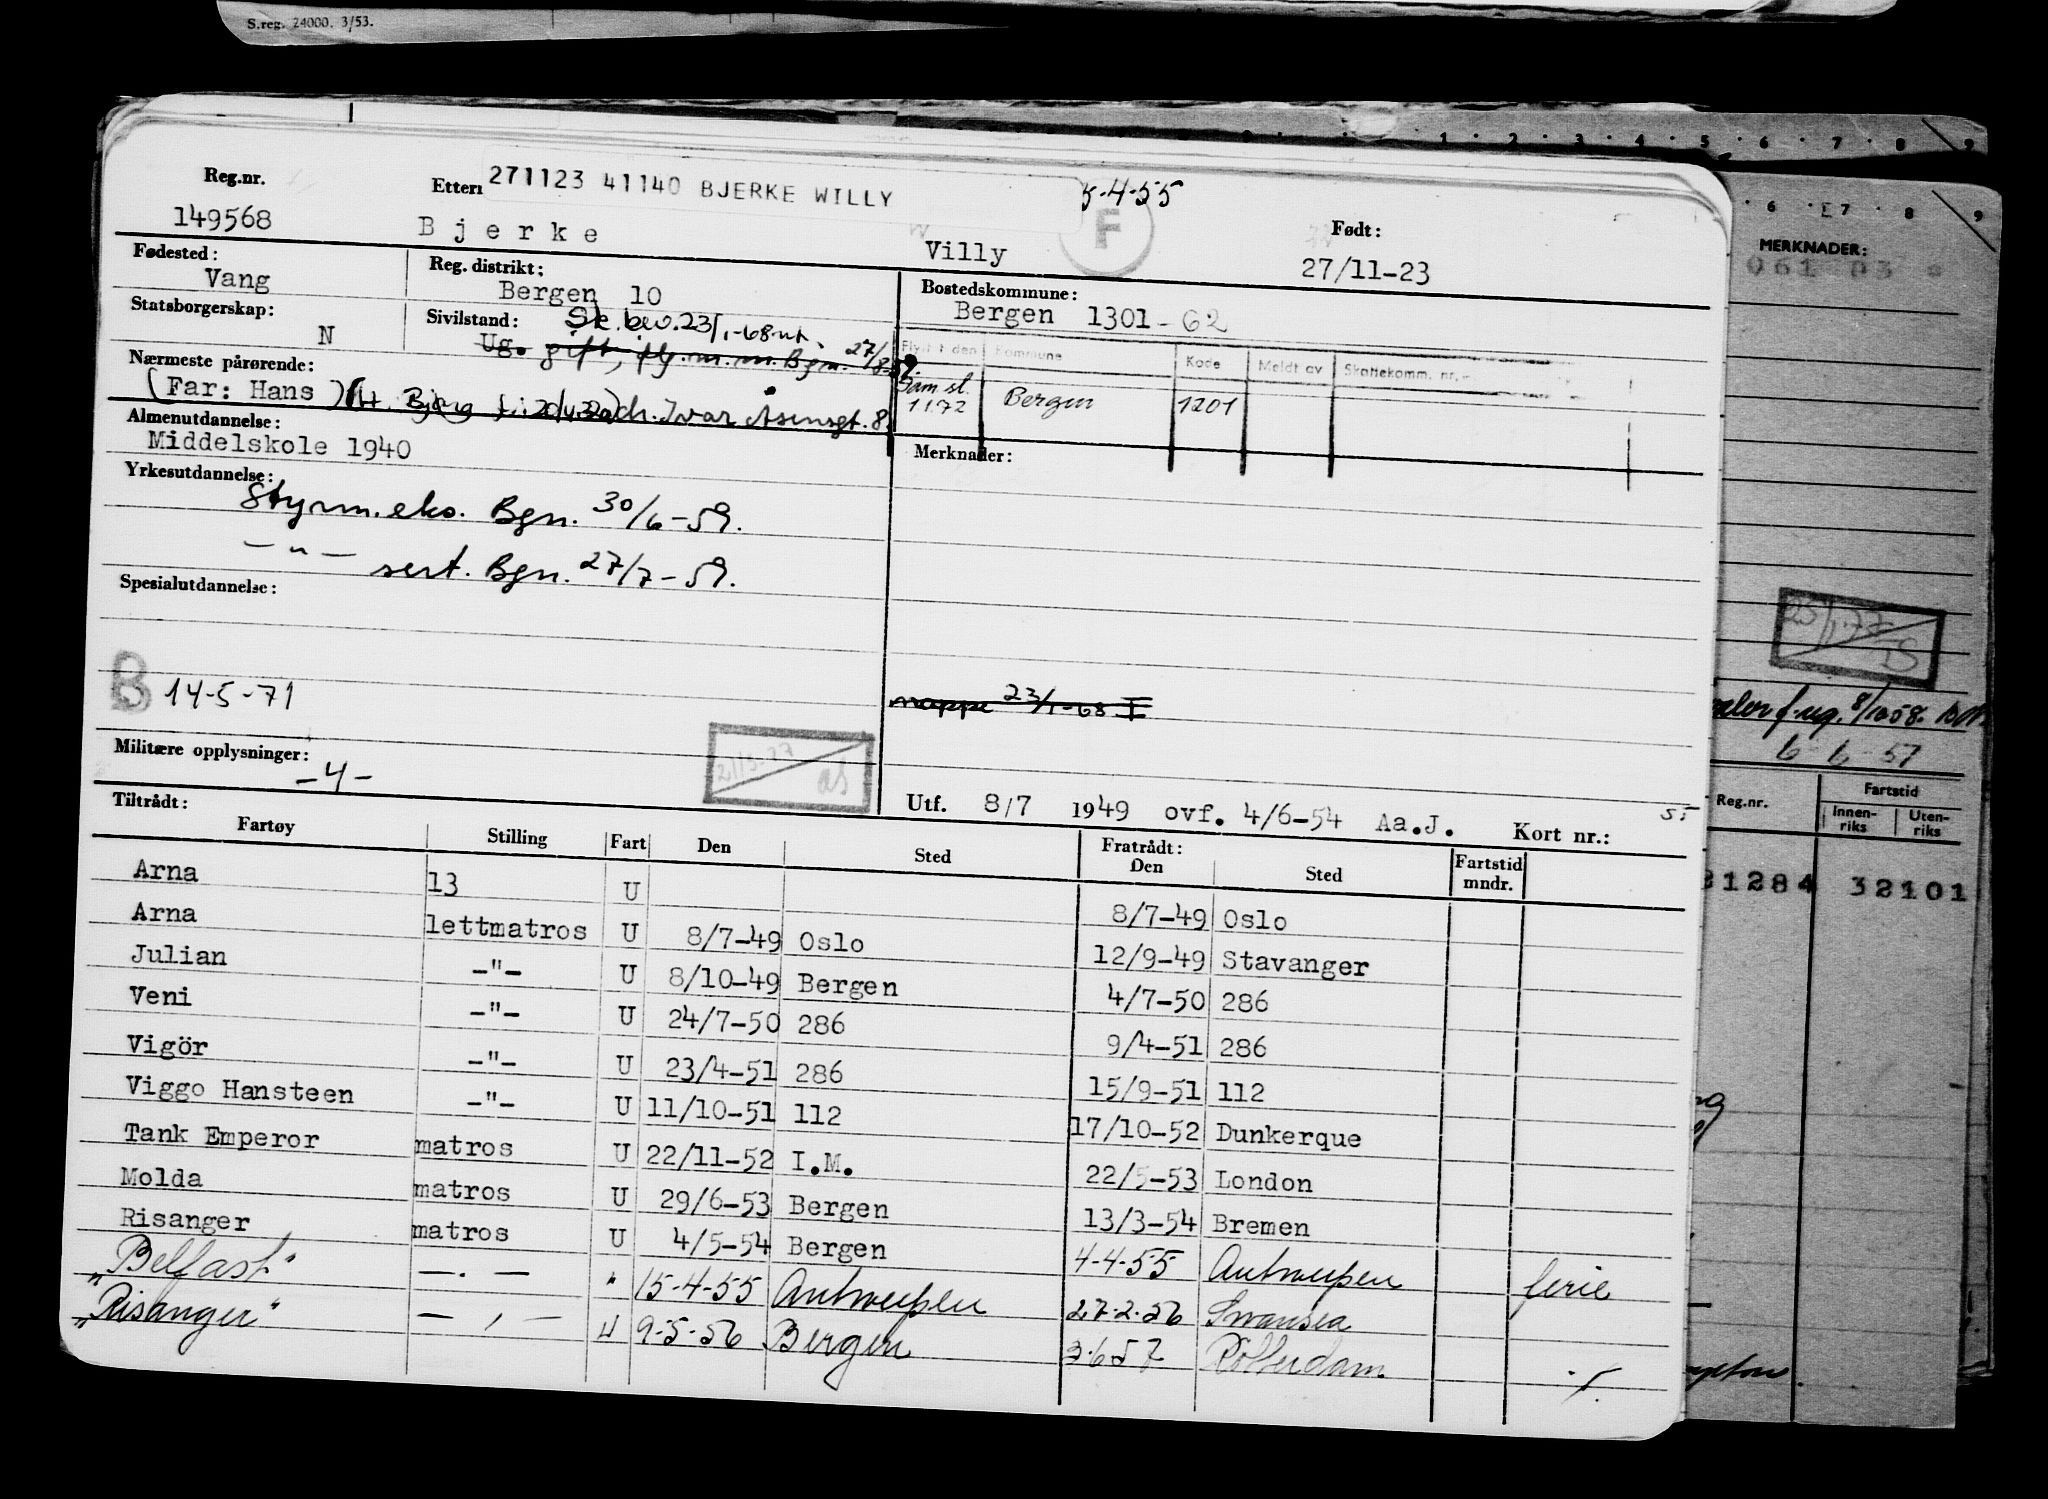 S.reg. 24000. 3/53.
Reg.nr.
149568
Ettern
271123 41140 BJERKE WILLY
5-4-55
F
Bjerke
Villy
Født:
27/11-23
Fødested:
Vang
Reg. distrikt:
Bergen 10
Bostedskommune:
Bergen 1301-62
Statsborgerskap:
N
Sivilstand:
Ug.
Kommune
Kode
Meldt av
Skattekomm. nr.
Sam st.
1172
Bergen
1201
Nærmeste pårørende:
(Far: Hans)
Almenutdannelse:
Middelskole 1940
Merknader:
Yrkesutdannelse:
Styrm.eks. Bgn. 30/6-59.
-"- sert. Bgn. 27/7-59.
Spesialutdannelse:
B 14-5-71
mappe 23/1-68 I
Militære opplysninger:
-4-
Utf. 8/7 1949 ovf. 4/6-54 Aa.J. Kort nr.:
Tiltrådt:
Fartøy Stilling Fart Den Sted Fratrådt: Den Sted Fartstid mndr.
Arna 13 U 8/7-49 Oslo
Arna lettmatros U 8/7-49 Oslo 12/9-49 Stavanger
Julian -"- U 8/10-49 Bergen 4/7-50 286
Veni -"- U 24/7-50 286 9/4-51 286
Vigör -"- U 23/4-51 286 15/9-51 112
Viggo Hansteen -"- U 11/10-51 112 17/10-52 Dunkerque
Tank Emperor matros U 22/11-52 I.M. 22/5-53 London
Molda matros U 29/6-53 Bergen 13/3-54 Bremen
Risanger matros U 4/5-54 Bergen 4-4-55 Antwerpen ferie
"Belfast" -.- " 15-4-55 Antwerpen 27-2-56 Swansea
"Risanger" -,- U 9-5-56 Bergen 3-6-57 Rotterdam ./.
1 2 3 4 5 6 7 8 9
6 7 8 9
MERKNADER:
061 03
6-6-57
Reg.nr.
Fartstid
Innen-riks
Uten-riks
81284 32101